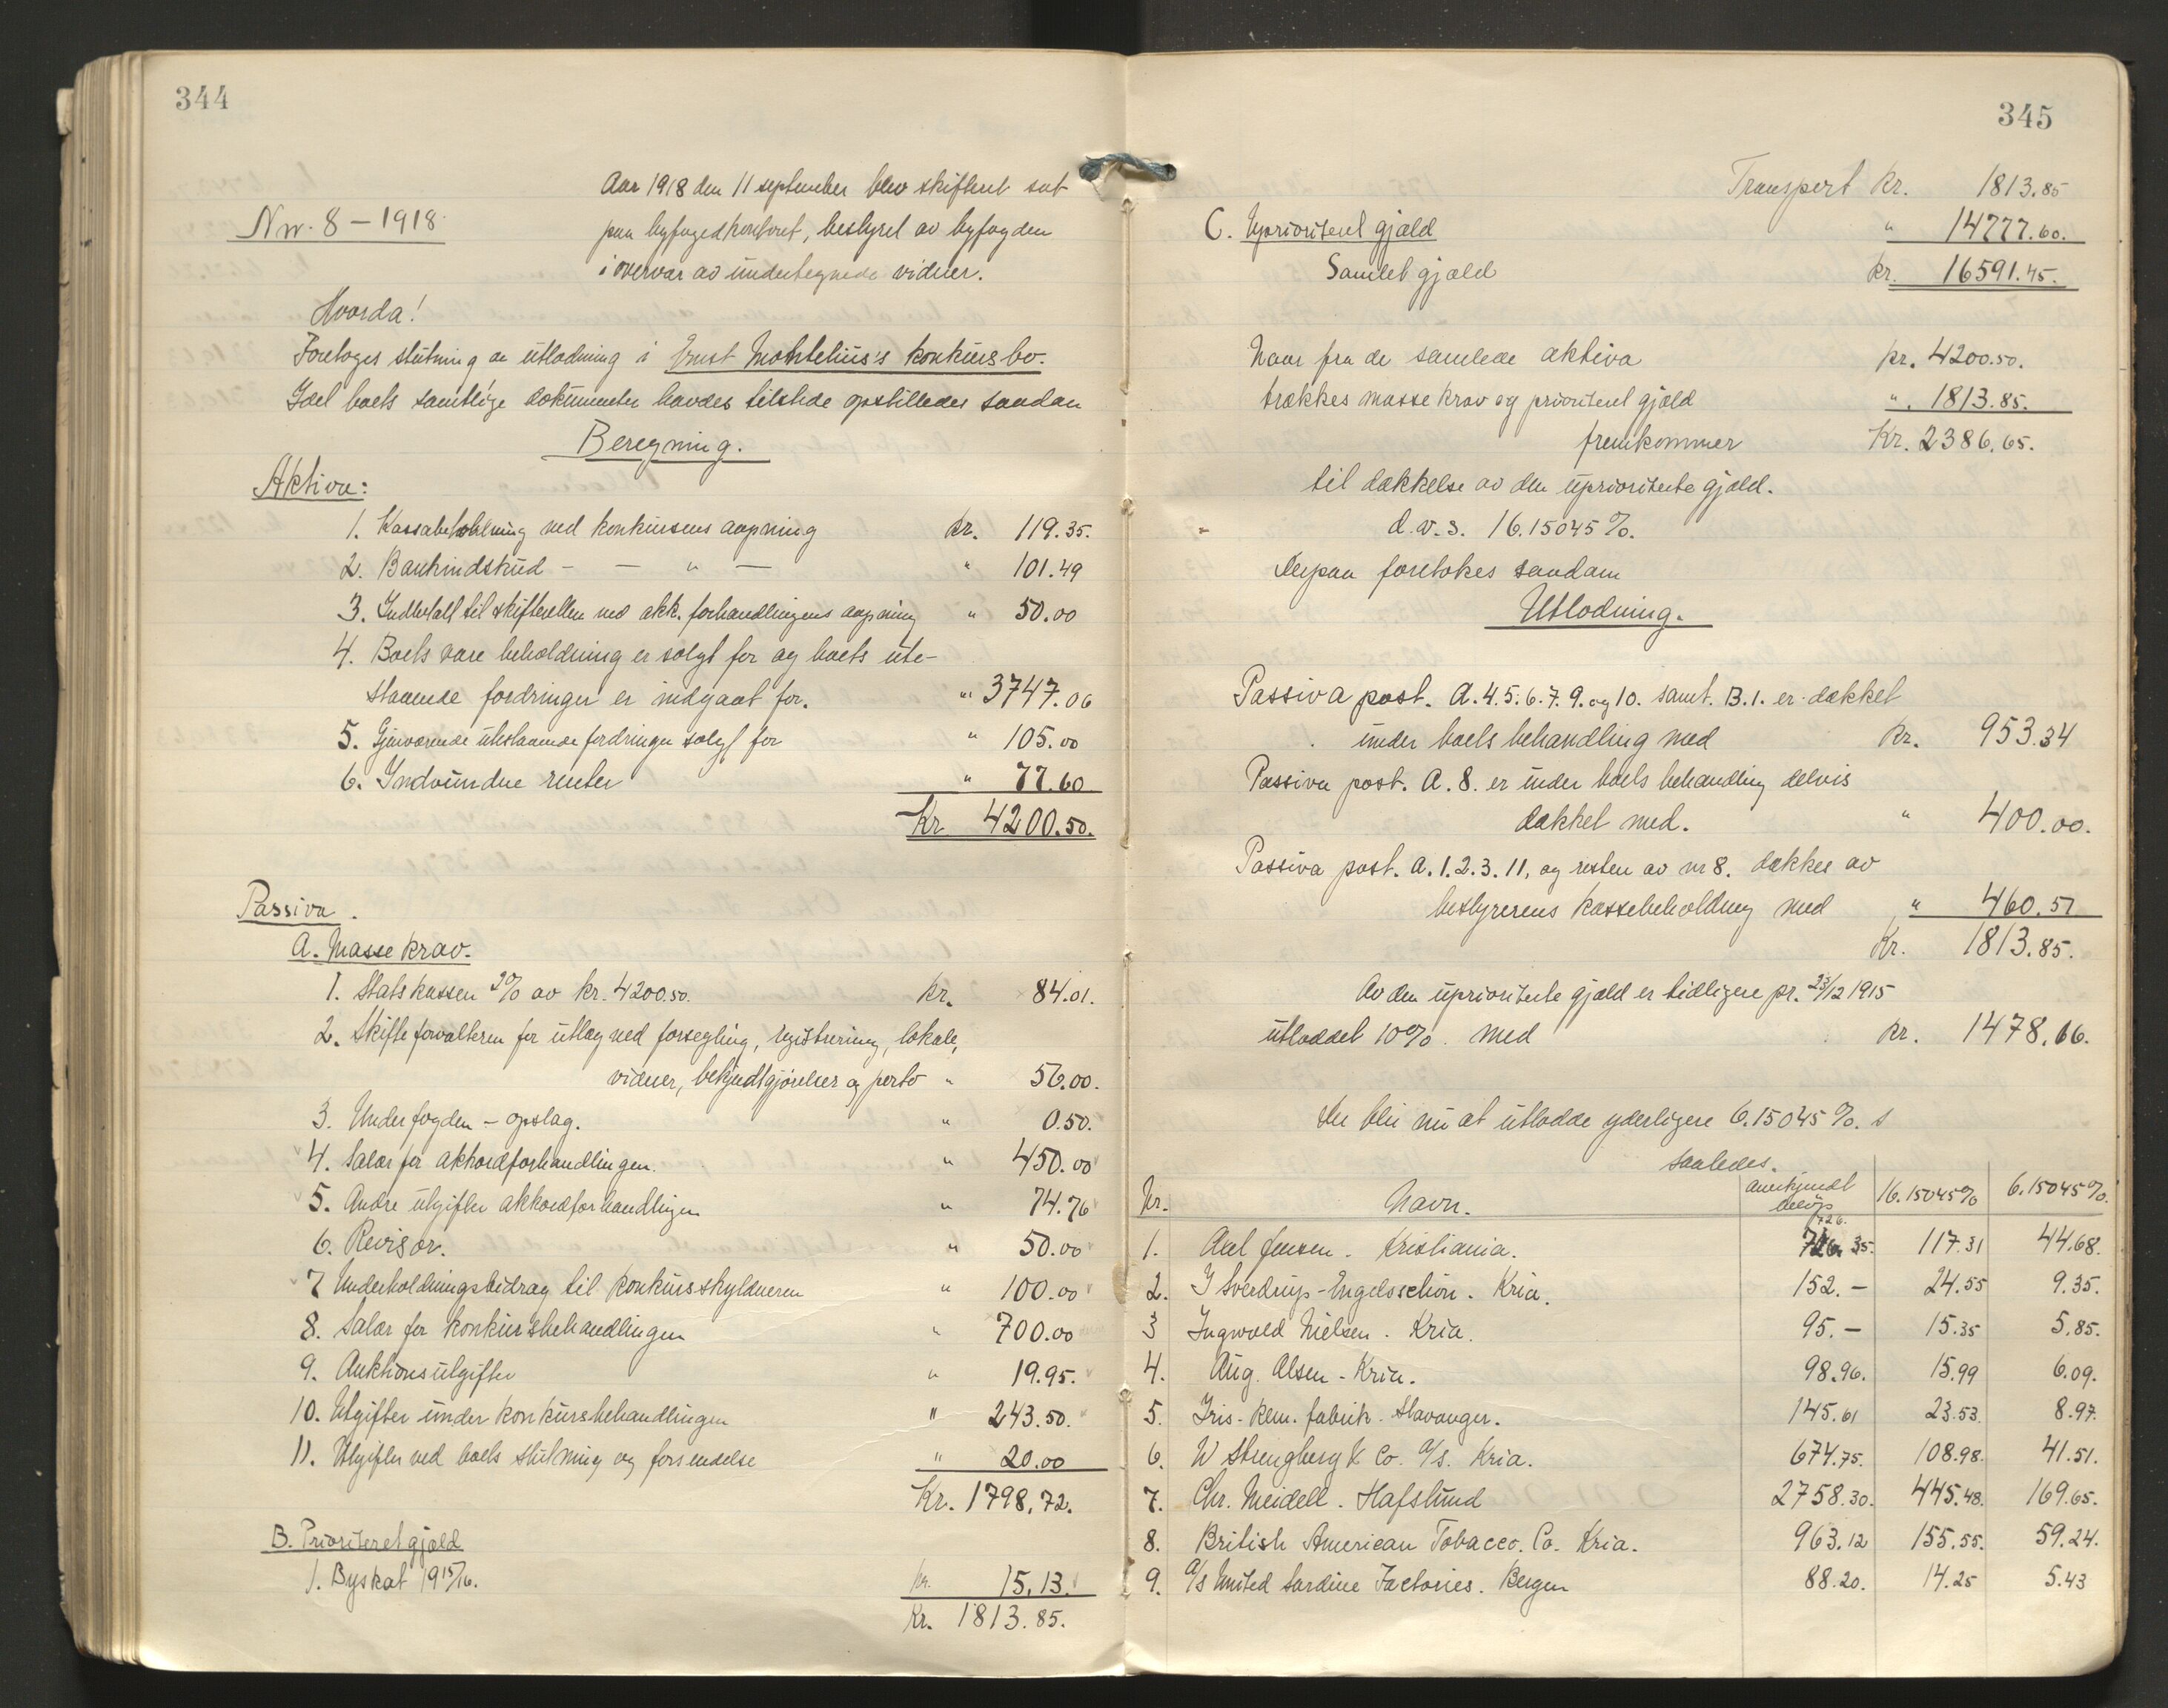 344
Aar 1918 den 11 september blev skifteret sat
Nr. 8 – 1918.
paa byfogedkontoret, bestyret av byfogden
i overvær av undertegnede vidner.
Hvorda!
Foretoges slutning av utlodning i Ernst Mohtelius's konkursbo.
Idet boets samtlige dokumenter havdes tilstede opstilledes saadan
Beregning.
Aktiva:
1. Kassabeholdning ved konkursens aapning kr. 119.35.
2. Bankindskud – — " — " 101.49
3. Indbetalt til skifteretten ved akk. forhandlingens aapning " 50.00
4. Boets vare beholdning er solgt for og boets ute-
staaende fordringer er indgaat for. " 3747.06
5. Gjenværende utestaaende fordringer solgt for " 105.00
6. Indvundne renter " 77.60
Kr 4200.50.
Passiva.
A. Masse krav.
1. Statskassen 2% av kr. 4200.50. kr. 84.01.
2. Skifteforvalteren for utlæg ved forsegling, registrering, lokale,
vidner, bekjendtgjørelser og porto " 56.00.
3. Underfogden – opslag. " 0.50.
4. Salær for akkordforhandlingen. " 450.00
5. Andre utgifter akkordforhandlingen " 74.76
6. Revisor. " 50.00
7 Underholdningsbidrag til konkursskyldneren " 100.00
8. Salær for konkursbehandlingen " 700.00
9. Auktionsutgifter " 19.95.
10. Utgifter under konkursbehandlingen " 243.50.
11. Utgifter ved boets slutning og forsendelse " 20.00
Kr. 1798.72.
B. Prioritert gjæld
1. Byskat 1915/16. kr. 15.13.
Kr. 1813.85.
345
Transport kr. 1813.85
C. Uprioritert gjæld " 14777.60.
Samlet gjæld kr. 16591.45.
Naar fra de samlede aktiva kr. 4200.50.
trækkes masse krav og prioritert gjæld " 1813.85.
fremkommer Kr. 2386.65.
til dækkelse av den uprioriterte gjæld.
d.v.s. 16.15045%.
Derpaa foretokes saadan
Utlodning.
Passiva post. A. 4. 5. 6. 7. 9. og 10. samt. B. 1. er dækket
under boets behandling med kr. 953.34
Passiva post. A. 8. er under boets behandling delvis
dækket med. " 400.00.
Passiva post. A. 1. 2. 3. 11, og resten av nr 8. dækkes av
bestyrerens kassebeholdning med " 460.51
Kr. 1813.85.
Av den uprioriterte gjæld er tidligere pr. 23/12 1915
utloddet 10%. med kr. 1478.66.
Der blir nu at utlodde yderligere 6.15045%.
saaledes.
Nr. Navn. anerkjendt beløp 16.15045% 6.15045%.
1. Axel Jensen. Kristiania. 726.35. 117.31 44.68.
2. I Sverdrup-Engelsschiøn. Kria. 152.– 24.55 9.35.
3 Ingwald Nielsen. Kria. 95.– 15.35 5.85.
4. Aug. Olsen – Kria. 98.96. 15.99 6.09.
5. Iris – kem. fabrik. Stavanger. 145.61 23.53. 8.97.
6. W Strengberg & Co. A/s. Kria. 674.75. 108.98. 41.51.
7. Chr. Meidell. Hafslund 2758.30. 445.48. 169.65.
8. British American Tobacco. Co. Kria. 963.12 155.55. 59.24.
9. A/s United Sardine Factories. Bergen 88.20. 14.25 5.43